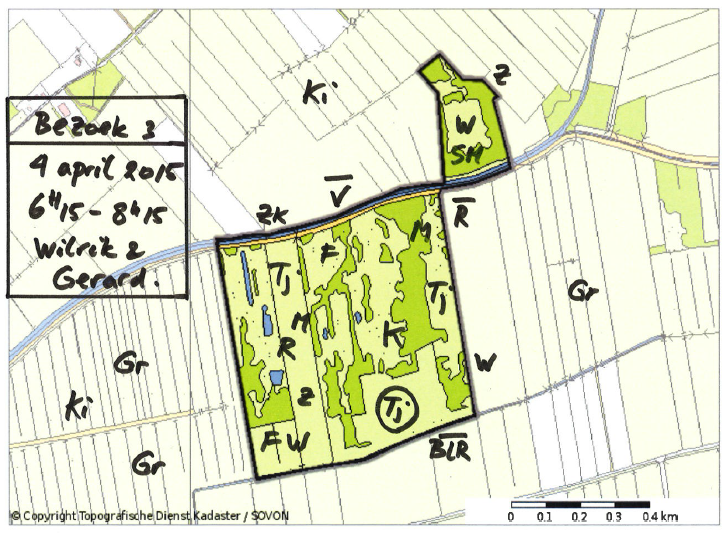 Bezoek 3
4 april 2015
6H15 - 8H15
Wilrik 2
Gerard.
Ki
Z
W
SM
V
ZK
R
M
F
Tj
Tj
Gr
M
R
K
Gr
W
Ki
Z
Tj
F W
BLR
Gr
© Copyright Topografische Dienst Kadaster / SOVON
0 0.1 0.2 0.3 0.4 km